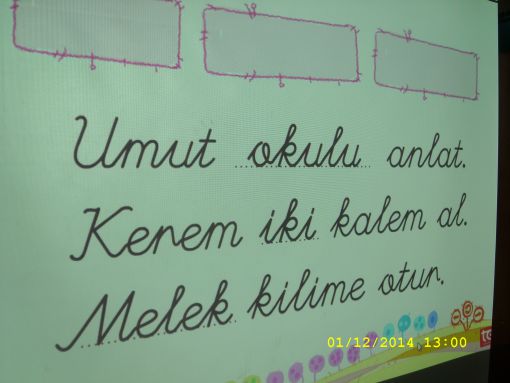 Umut okulu anlat.
Kerem iki kalem al.
Melek kilime otur.
01/12/2014 13:00